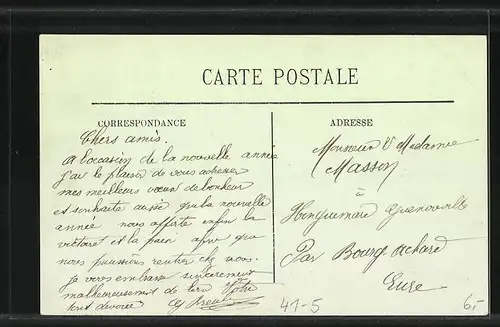 CARTE POSTALE
CORRESPONDANCE
Chers amis.
A l'occasion de la nouvelle année
j'ai le plaisir de vous adresser
mes meilleurs vœux de bonheur
et souhaite aussi que la nouvelle
année nous apporte enfin la
victoire et la paix afin que
nous puissions rentrer chez nous.
Je vous embrasse sincèrement
malheureusement de loin Votre
tout dévoué
ADRESSE
Monsieur & Madame
Masson
à
Honguemare Guenouville
Par Bourg Achard
Eure
41-5
6,-